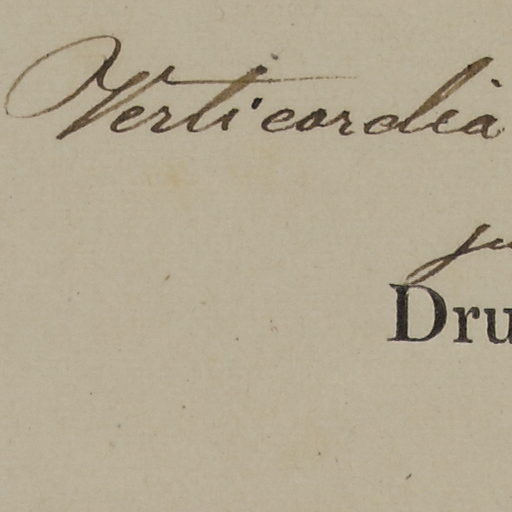 Verticordia
Dru